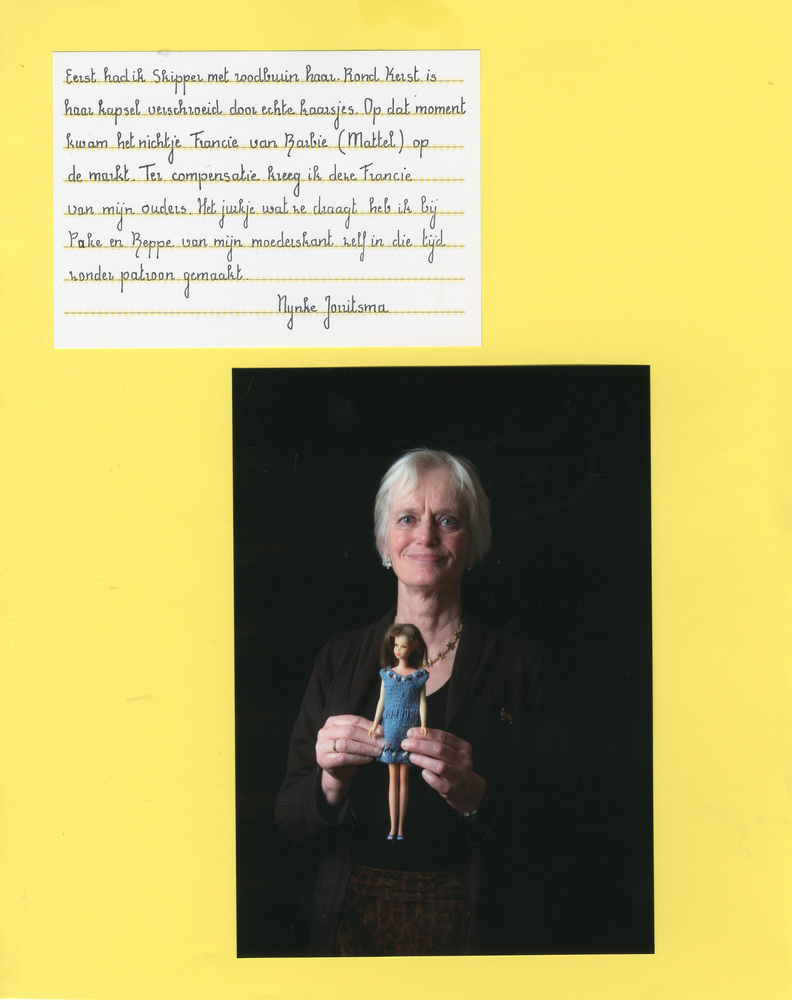 Eerst had ik Skipper met roodbruin haar. Rond Kerst is
haar kapsel verschroeid door echte kaarsjes. Op dat moment
kwam het nichtje Francie van Barbie (Mattel) op
de markt. Ter compensatie kreeg ik deze Francie
van mijn ouders. Het jurkje wat ze draagt heb ik bij
Pake en Beppe van mijn moederskant zelf in die tijd
zonder patroon gemaakt.
Nynke Jorritsma